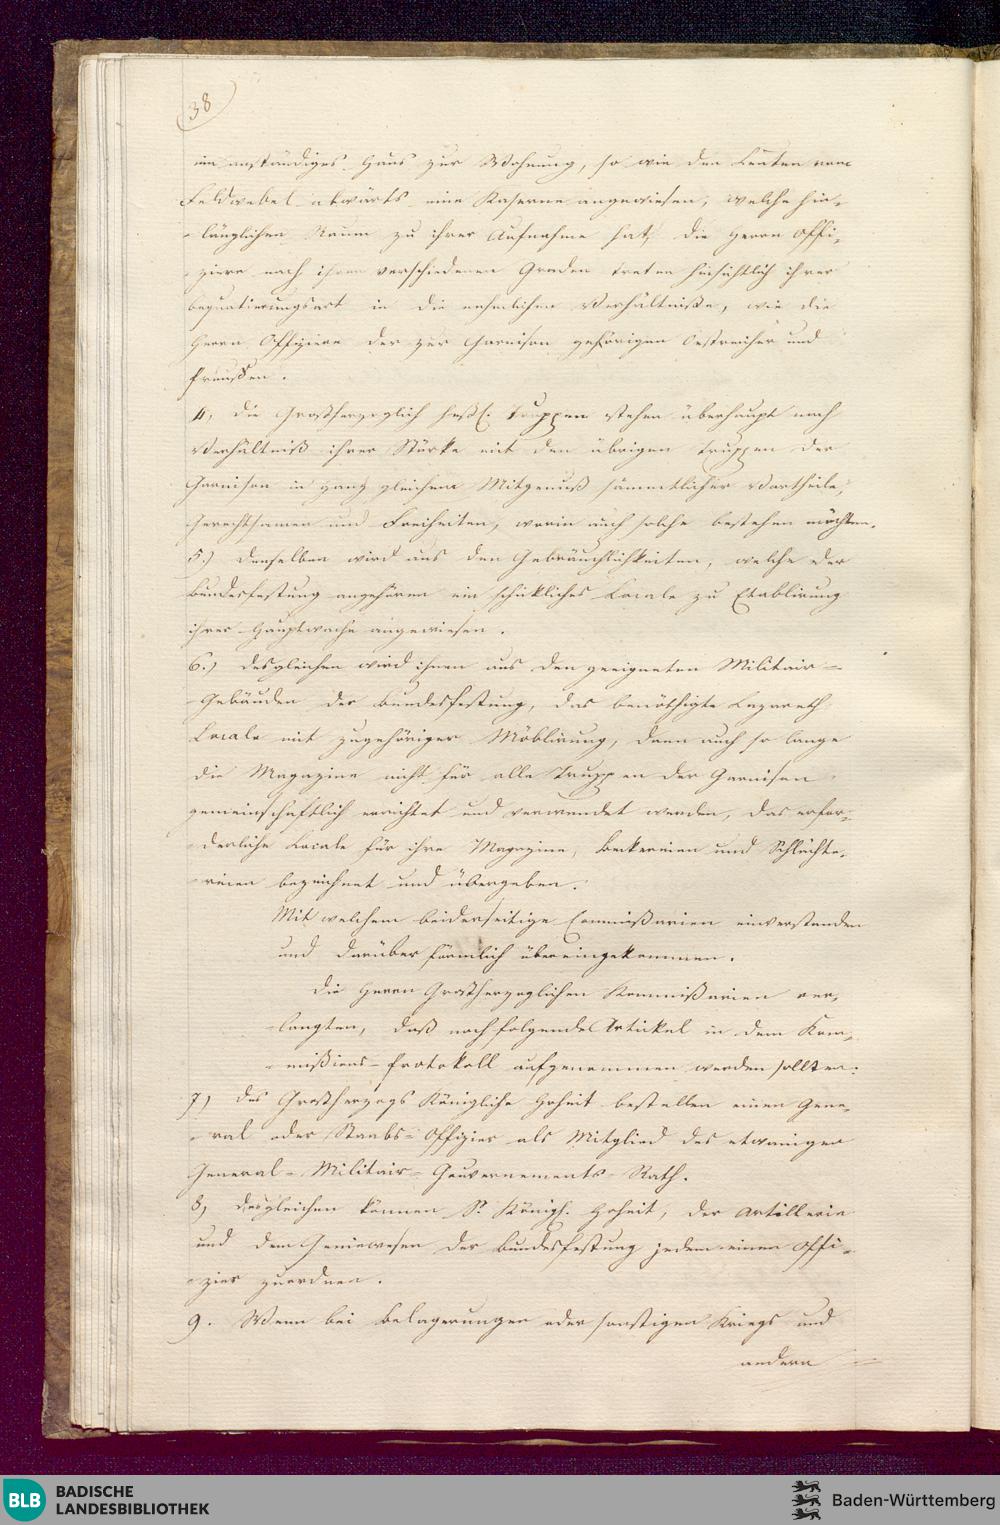 38
ein anständiges Haus zur Wohnung, so wie den Leuten vom
Feldwebel abwärts eine Kaserne angewiesen, welche hin-
länglichen Raum zu ihrer Aufnahme hat; die Herrn Offi-
ziere nach ihren verschiedenen Graden treten hinsichtlich ihrer
bequatierungsart in die nehmlichen Verhältniße, wie die
Herrn Offiziere der zur Garnison gehörigen Oestreicher und
Preußen.
4, Die Großherzoglich heßl: Truppen stehen überhaupt nach
Verhältniß ihrer Stärke mit den übrigen Truppen der
Garnison in ganz gleichem Mitgenuß sämmtlicher Vortheile,
Gerechtsamen und Freiheiten, worin auch solche bestehen möchten.
5.) Denselben wird aus den Gebräuchlichkeiten, welche der
Bundesfestung angehören ein schickliches Locale zu Etablirung
ihrer Hauptwache angewiesen.
6.) desgleichen wird ihnen aus den geeigneten Militair-
Gebäuden der Bundesfestung, das benöthigte Lazareth
Locale mit zugehöriger Möblirung, dann auch so lange
die Magazine nicht für alle Truppen der Garnison
gemeinschaftlich errichtet und verwendet werden, das erfor-
derliche Locale für ihre Magazine, Beckereien und Schlächte-
reien bezeichnet und übergeben.
Mit welchem beiderseitige Commißarien einverstanden
und darüber förmlich übereingekommen.
Die Herrn Großherzoglichen Kommißarien ver-
langten, daß nachfolgende Artickel in dem Kom-
mißions-Protokoll aufgenommen werden sollten:
7, Des Großherzogs Königliche Hoheit bestellen einen Gene-
ral oder Staabs-Offizier als Mitglied des etwanigen
General-Militair-Gouvernements-Rath.
8, desgleichen können Sr. Königl: Hoheit, der Artillerie
und dem Geniewesen der Bundesfestung jedem einen Offi-
zier zuordnen.
9. Wenn bei Belagerungen oder sonstigen Kriegs und
andern
BLB BADISCHE
LANDESBIBLIOTHEK
Baden-Württemberg